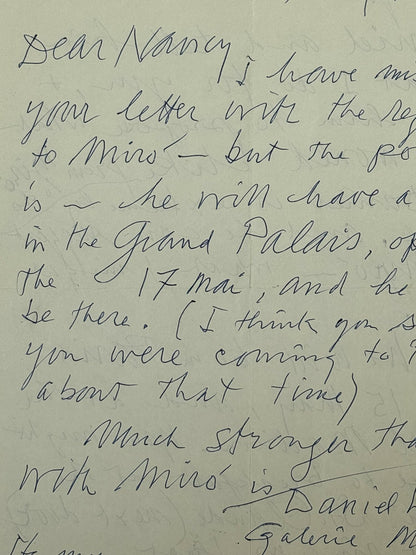 Dear Nancy
I have
your letter with the
to Miró — but the
is — he will have a
in the Grand Palais,
the 17 Mai, and he
be there. (I think you
you were coming to
about that time)
Much stronger
with Miró is
Daniel
Galerie M